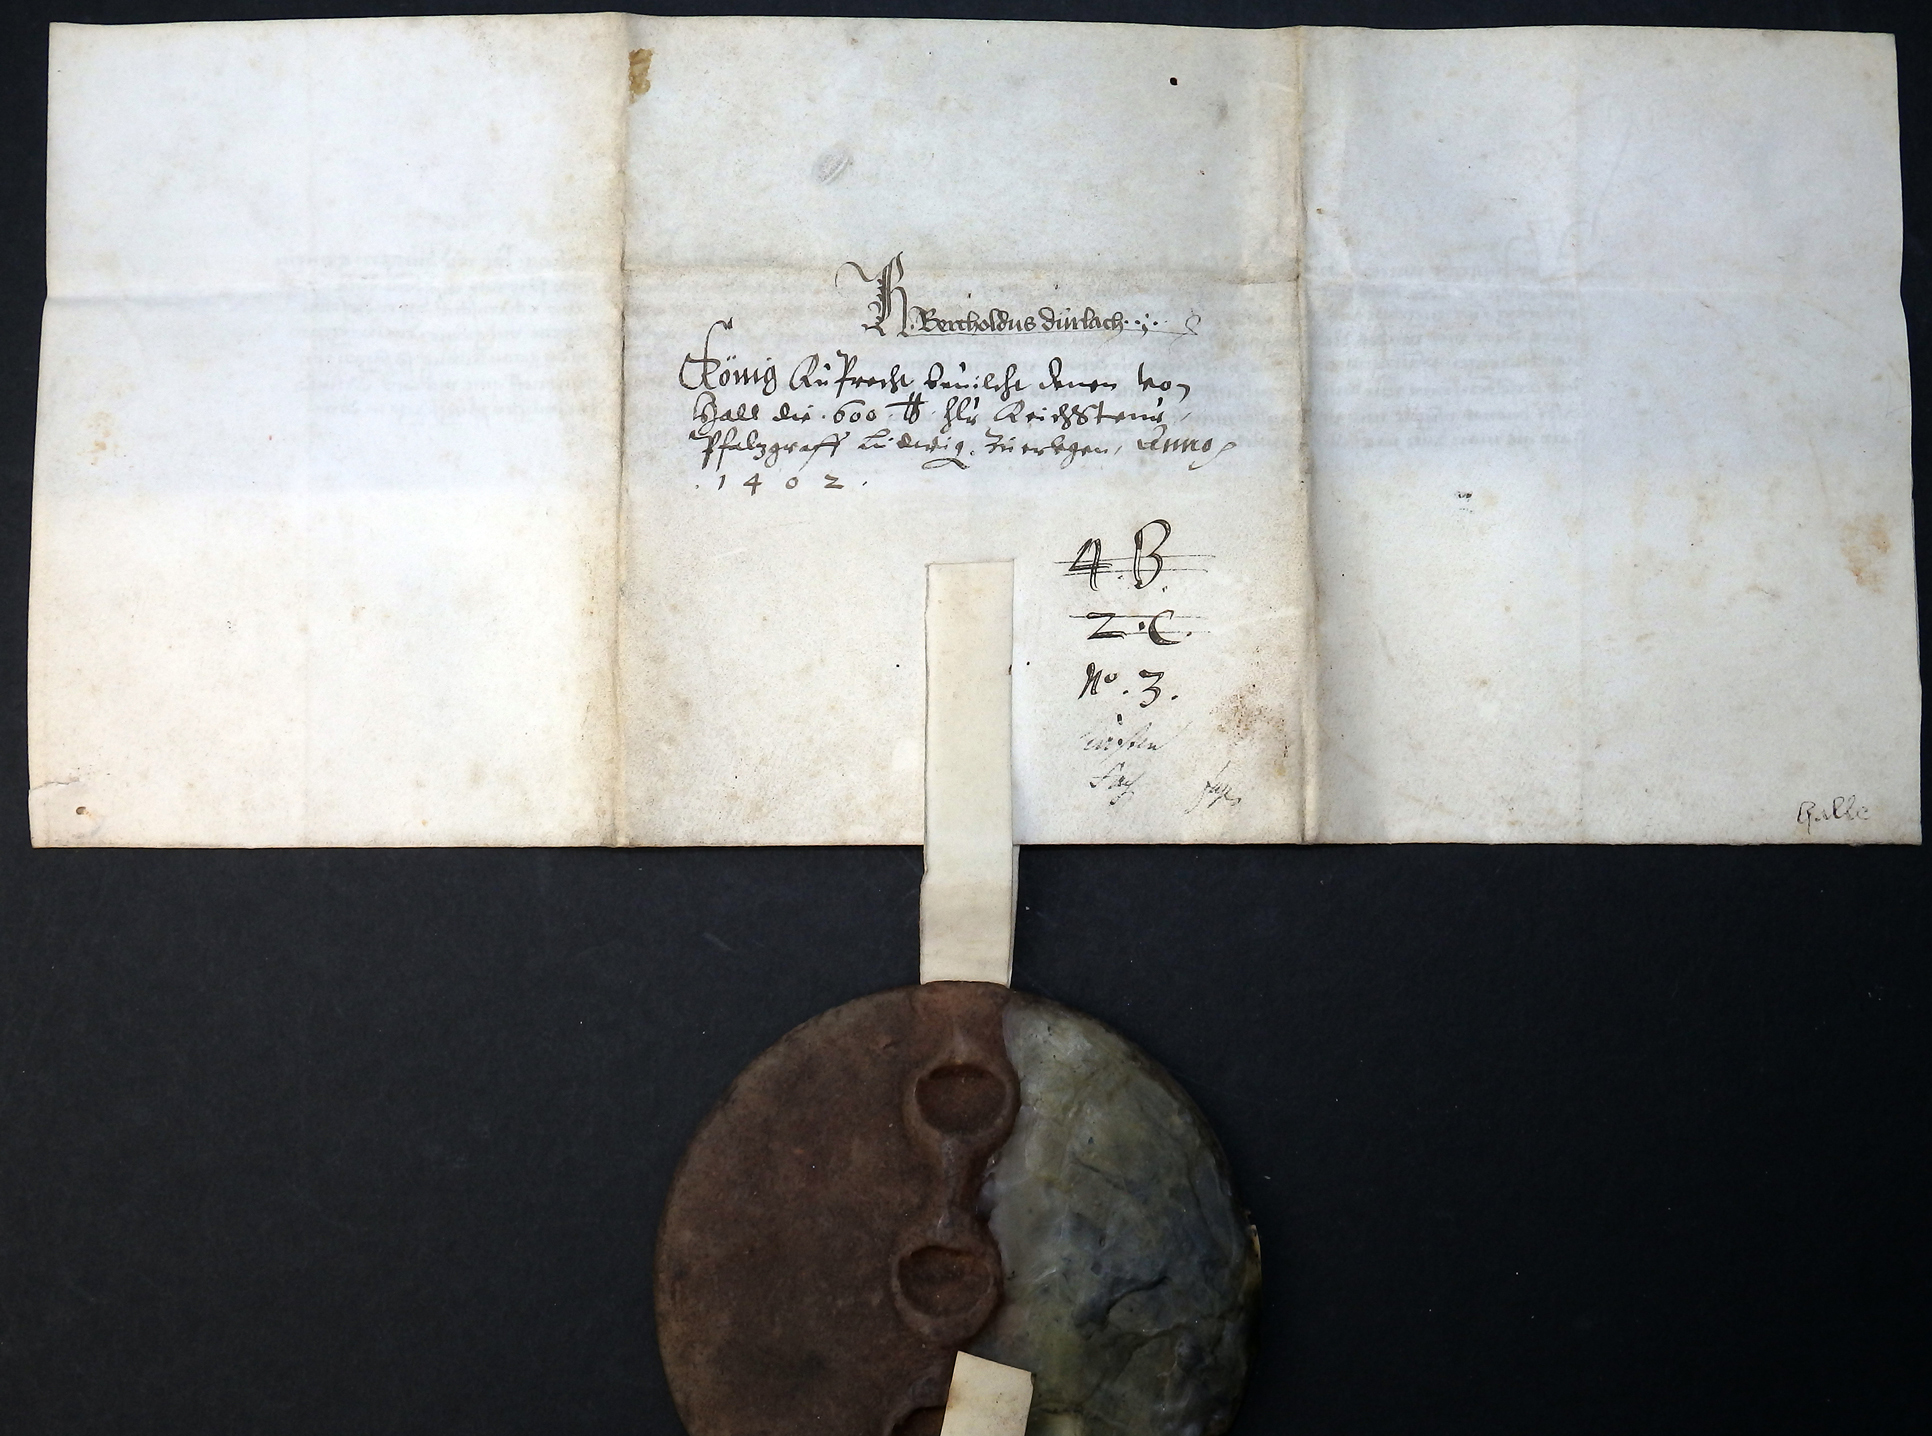 R. Bertholdus dürlach
König Ruprecht beuilcht denen von
Hall die .600. ℔ hlr Reichsteur,
Pfaltzgraff Ludwig. Zuerlegen, Anno
.1 4 0 2.
4. B.
2. C.
No. 3.
Halle